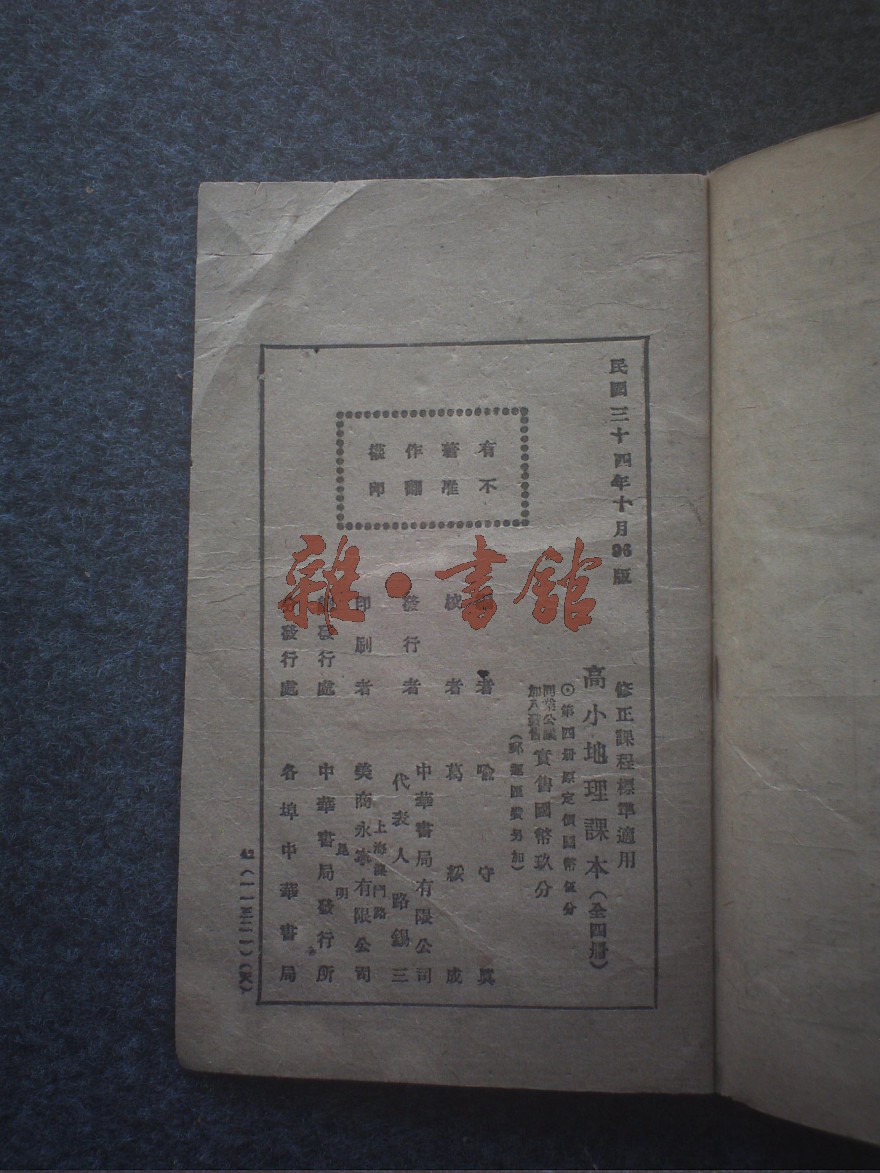 民國三十四年十月96版
修正課程標準適用
高小地理課本（全四册）
⊙第四册原定價國幣伍分
同業公議
加八發售
實售國幣玖分
（郵運匯費另加）
有著作權
不准翻印
者 喻守真
校者 葛綏成
發行者 中華書局有限公司
代表人路錫三
印刷者 上海澳門路
美商永寧有限公司
發行處 昆明
中華書局發行所
分發行處 各埠中華書局
雜·書館